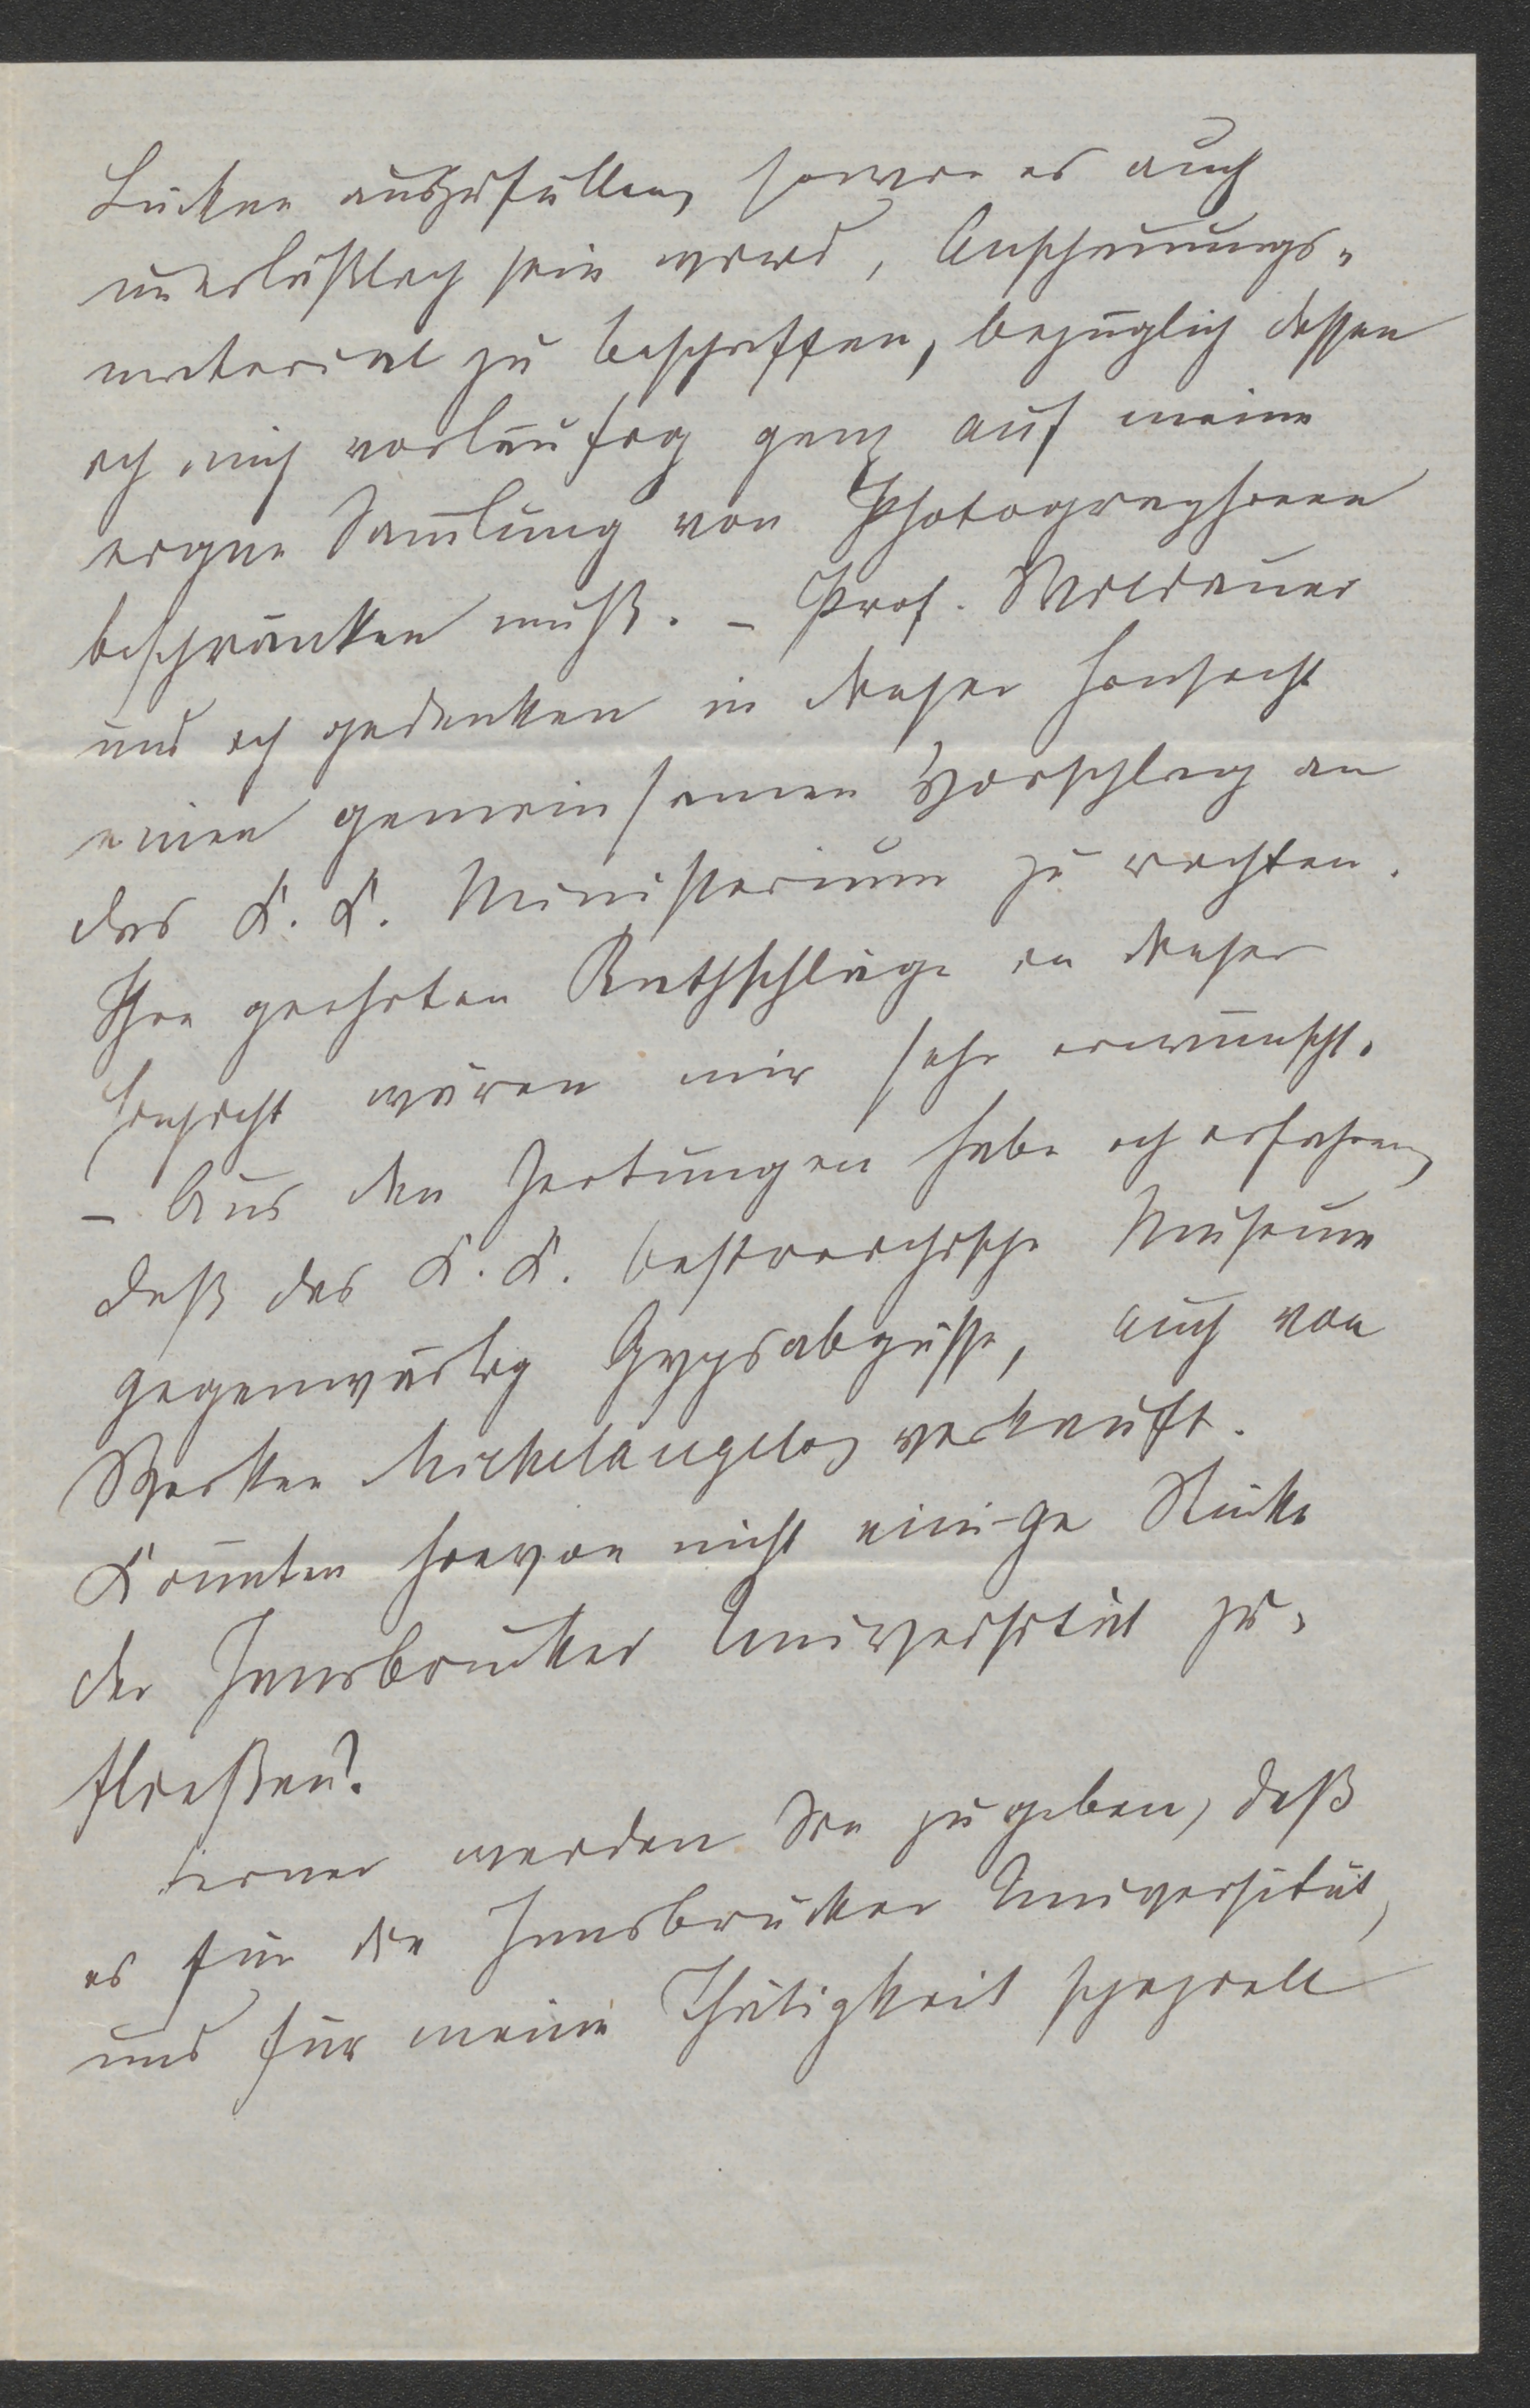 Lücken auszufüllen, sowie es auch
unerläßlich sein wird, Anschauungs-
material zu beschaffen, bezüglich dessen
ich mich vorläufig ganz auf meine
eigne Sam̄lung von Photographieen
beschränken muß. – Prof. Wildauer
und ich gedenken in dieser Hinsicht
einen gemeinsamen Vorschlag an
das K. K. Ministerium zu richten.
Ihre geehrten Rathschläge in dieser
Hinsicht wären mir sehr erwünscht.
– Aus den Zeitungen habe ich erfahren,
daß das K. K. Oestreichische Museum
gegenwärtig Gypsabgüsse, auch von
Werken Michelangelos verkauft.
Könnten hievon nicht einige Stücke
der Innsbrucker Universität zu-
fließen?
Ferner werden Sie zugeben, daß
es für die Innsbrucker Universität,
und für meine Thätigkeit speziell